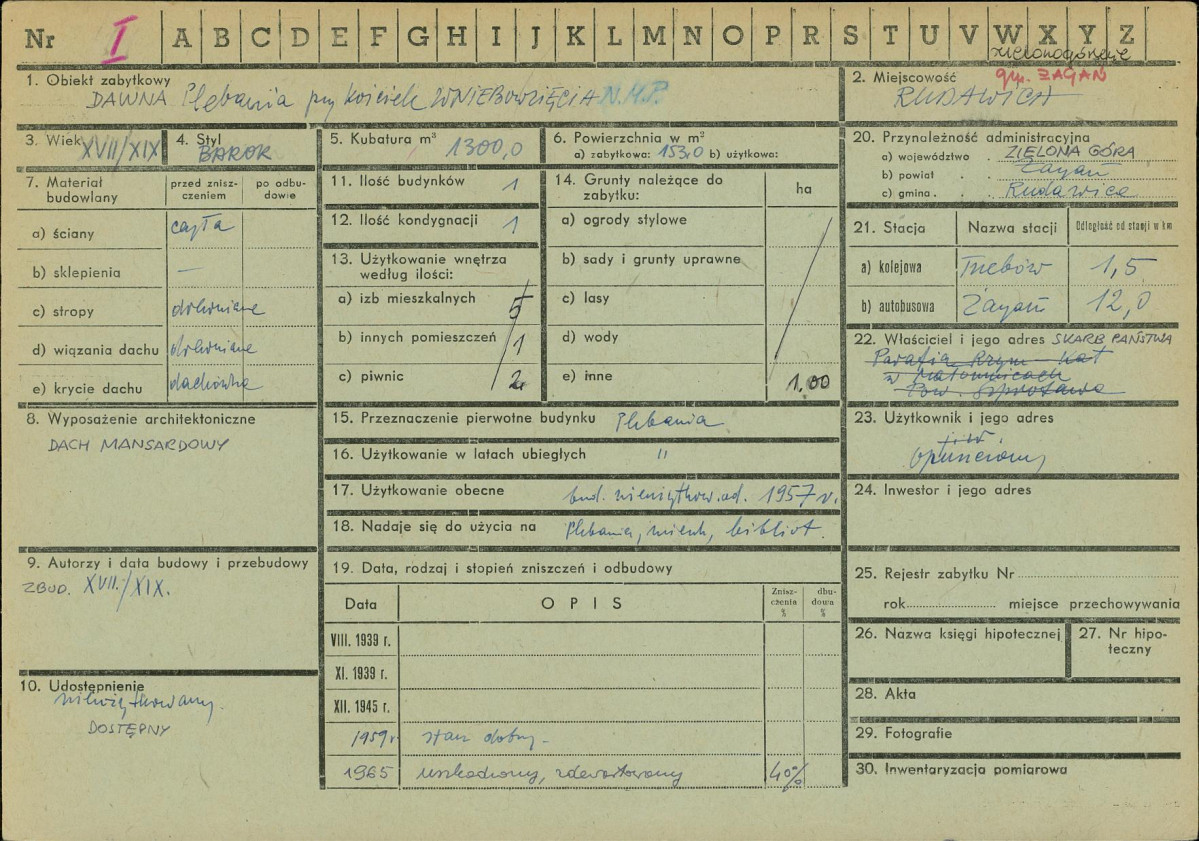 Nr I A B C D E F G H I J K L M N O P R S T U V W X Y Z
zielonogórskie
1. Obiekt zabytkowy
DAWNA Plebania przy kościele WNIEBOWZIĘCIA N.M.P.
2. Miejscowość gm. ŻAGAŃ
RUDAWICA
3. Wiek XVII/XIX
4. Styl
BAROK
5. Kubatura m³ 1300,0
6. Powierzchnia w m²
a) zabytkowa: 153,0 b) użytkowa:
20. Przynależność administracyjna
a) województwo . ZIELONA GÓRA
b) powiat . . Żagań
c) gmina . . Rudawica
7. Materiał budowlany
przed zniszczeniem
po odbudowie
a) ściany cegła
b) sklepienia —
c) stropy drewniane
d) wiązania dachu drewniane
e) krycie dachu dachówka
11. Ilość budynków 1
12. Ilość kondygnacji 1
13. Użytkowanie wnętrza
według ilości:
a) izb mieszkalnych 5
b) innych pomieszczeń 1
c) piwnic 2
14. Grunty należące do
zabytku:
ha
a) ogrody stylowe
b) sady i grunty uprawne
c) lasy
d) wody
e) inne 1.00
21. Stacja Nazwa stacji Odległość od stacji w km
a) kolejowa Trzebów 1,5
b) autobusowa Żagań 12,0
22. Właściciel i jego adres SKARB PAŃSTWA
Parafia Rzym - Kat
w Małomicach
Pow. Szprotawa
8. Wyposażenie architektoniczne
DACH MANSARDOWY
15. Przeznaczenie pierwotne budynku Plebania
16. Użytkowanie w latach ubiegłych "
17. Użytkowanie obecne bud. nieużytkow. od. 1957 r.
18. Nadaje się do użycia na Plebania, mieszk, bibliot.
23. Użytkownik i jego adres
j.w.
opuszczony
24. Inwestor i jego adres
9. Autorzy i data budowy i przebudowy
ZBUD. XVII./XIX.
19. Data, rodzaj i stopień zniszczeń i odbudowy
Data OPIS Zniszczenia % dbudowa %
VIII. 1939 r.
XI. 1939 r.
XII. 1945 r.
1959r. stan dobry -
1965 uszkodzony, zdewastowany 40%
25. Rejestr zabytku Nr
rok miejsce przechowywania
26. Nazwa księgi hipotecznej
27. Nr hipo-
teczny
10. Udostępnienie
nieużytkowany.
DOSTĘPNY
28. Akta
29. Fotografie
30. Inwentaryzacja pomiarowa